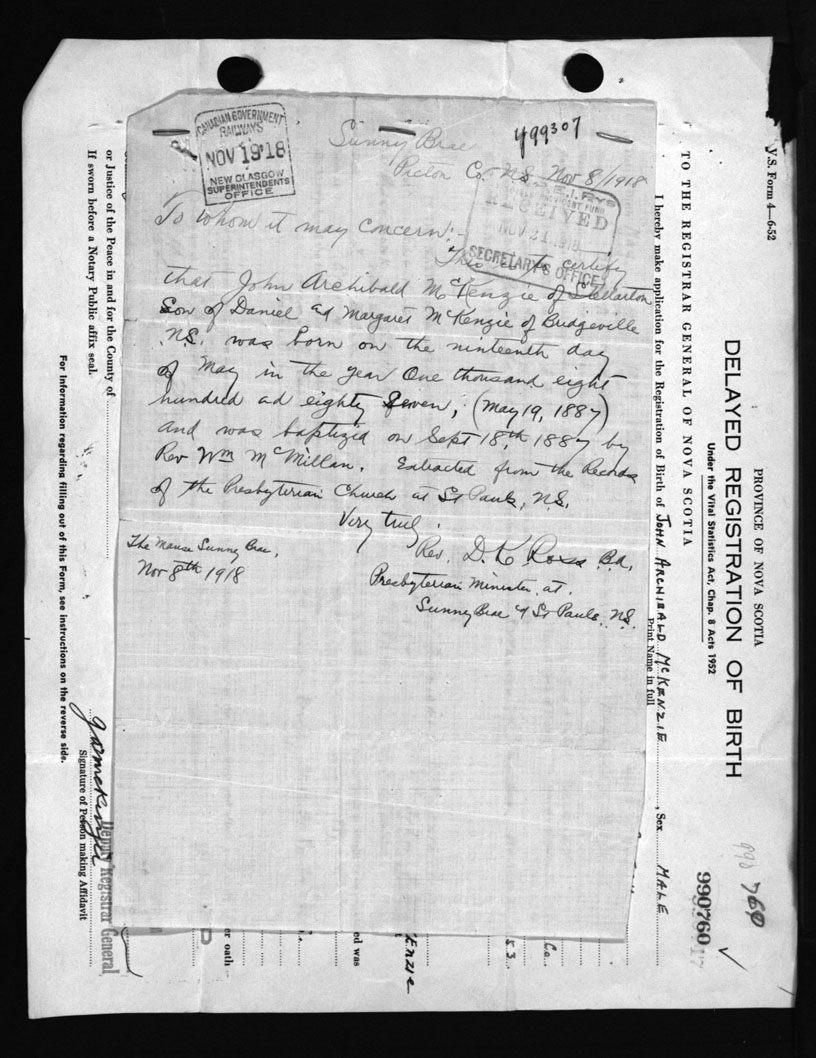 CANADIAN GOVERNMENT
RAILWAYS
NOV 19 18
NEW GLASGOW
SUPERINTENDENTS
OFFICE
499307
Sunny Brae
Pictou Co. N.S. Nov 8/1918
RECEIVED
NOV 21 1918
SECRETARY'S OFFICE
To whom it may Concern:-
This is to certify
that John Archibald McKenzie of Stellarton
Son of Daniel ad Margaret McKenzie of Bridgeville
N.S. was born on the ninteenth day
of May in the year One thousand eight
hundred ad eighty Seven; (May 19, 1887)
and was baptized on Sept 18th, 1887 by
Rev Wm McMillan. Extracted from the Records
of the Presbyterian Church at St Pauls, N.S.
Very truly.
Rev. D. K. Ross B.D.,
Presbyterian Minister at
Sunny Brae & St Pauls, N.S.
The Manse Sunny Brae,
Nov 8th 1918
V.S. Form 4—6-52
PROVINCE OF NOVA SCOTIA
DELAYED REGISTRATION OF BIRTH
Under the Vital Statistics Act, Chap. 8 Acts 1952
TO THE REGISTRAR GENERAL OF NOVA SCOTIA
I hereby make application for the Registration of Birth of JOHN ARCHIBALD McKENZIE, Sex MALE
Print Name in full
990 760
990760
Co.
53
ENZIE
ed was
er oath
D
Deputy Registrar General
Signature of Person making Affidavit
or Justice of the Peace in and for the County of
If sworn before a Notary Public affix seal.
For information regarding filling out of this Form, see instructions on the reverse side.